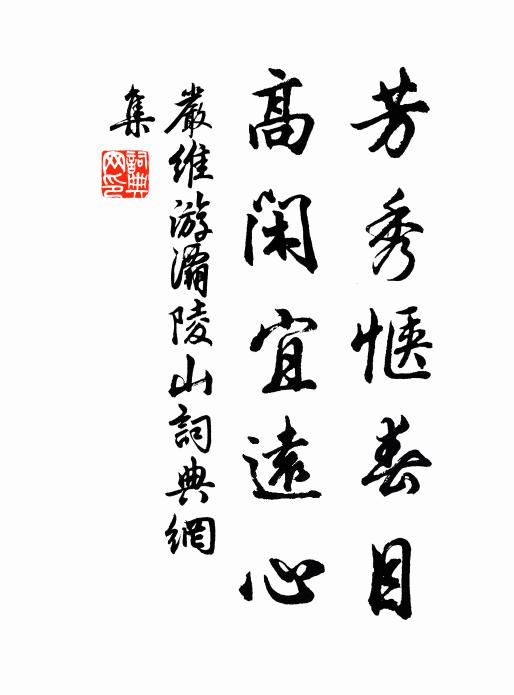 芳秀惬春目
高闲宜遠心
嚴維游灞陵山詞典網
集
詞典
网印